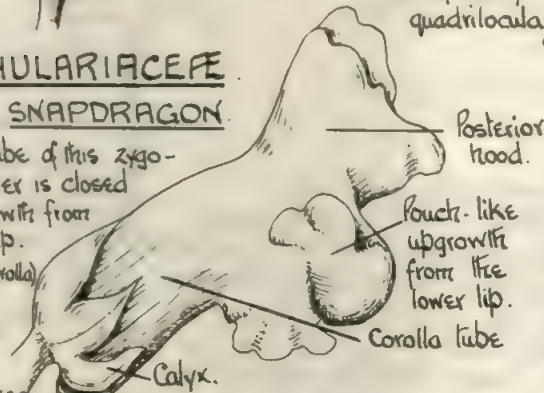 quadrilocula
HULARIACEÆ
SNAPDRAGON
ube of this zygo-
er is closed
wth from
p.
rolla)
Posterior
hood.
Pouch-like
upgrowth
from the
lower lip.
Corolla tube
Calyx.